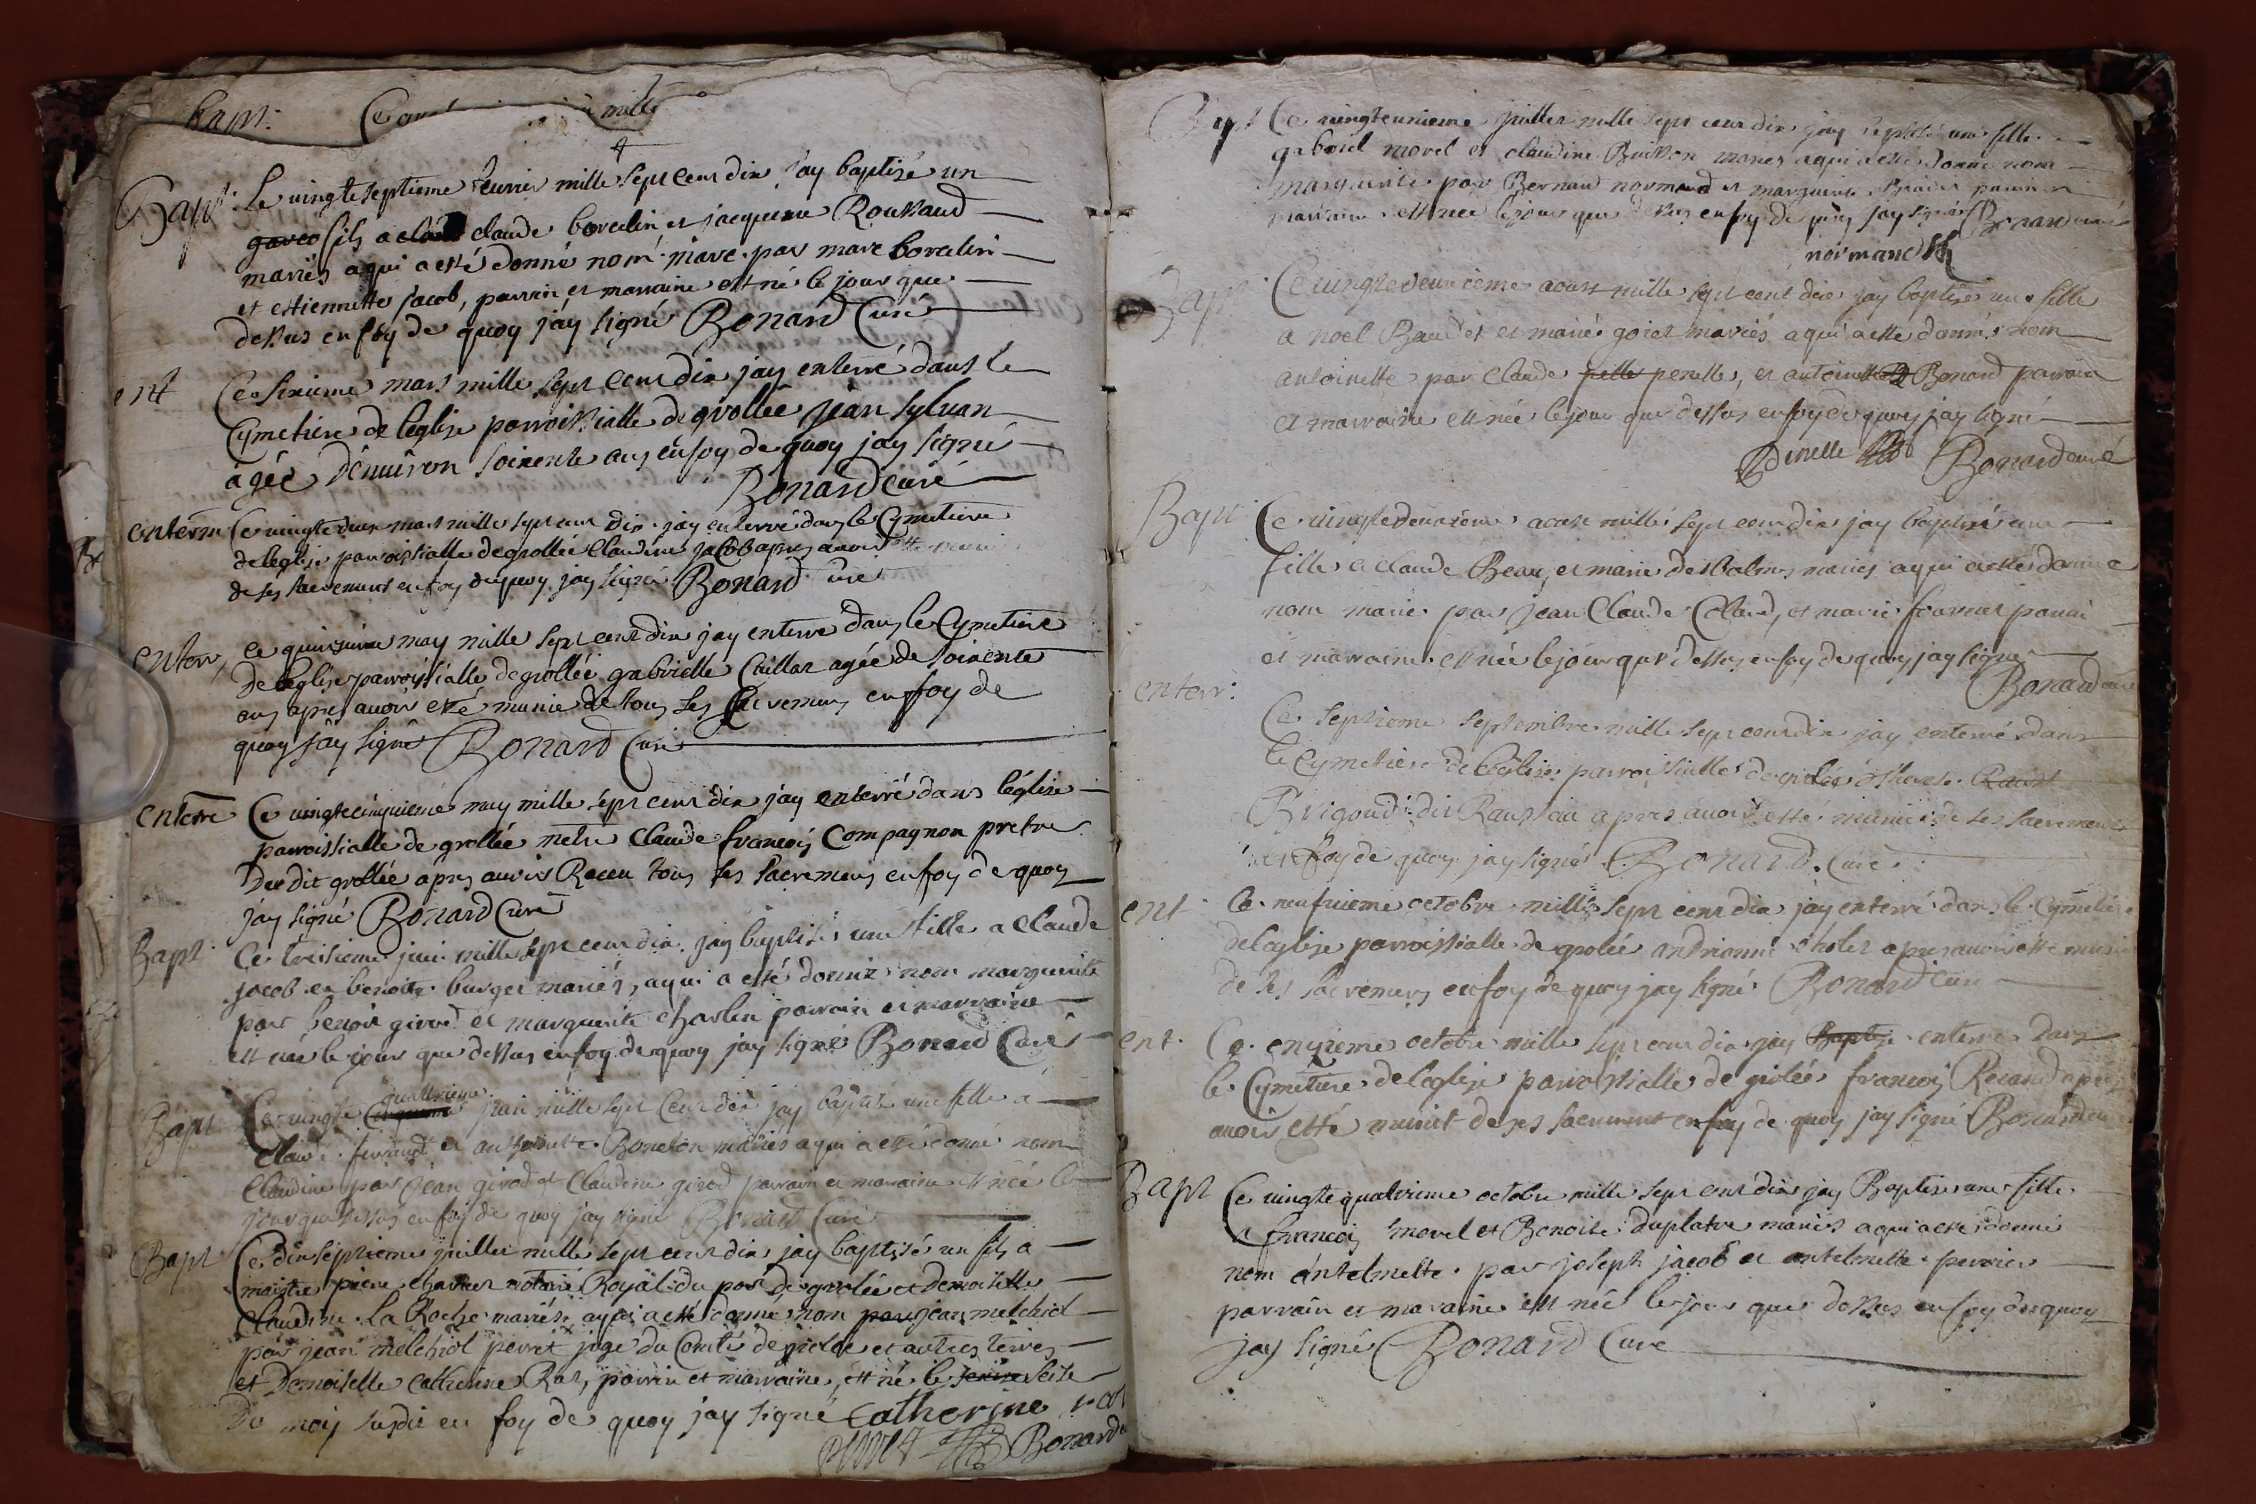 bapt:
mille
Bapt: Ce vingteseptieme feuvrier mille sept cens dix jay baptizé un
fils a claude borcelin et jacqueme Roussaud
mariés a qui a esté donné nom marc par marc borcelin
et estiennette jacob, parrain et marraine est né le jour que
dessus en foy de quoy jay signé Bonard Curé
ent Ce sixieme mars mille sept cens dix jay enterré dans le
Cymetiere de leglise parroissialle de grollée jean sylvan
agée denuiron soixente ans en foy de quoy jay signé
Bonard Curé
enterm Ce vingtedeux mars mille sept cens dix jay enterré dans le Cymetiere
de leglise parroissialle de grollée Claudine jacob apres avoir esté munie
de ses sacremens en foy de quoy jay signé Bonard Curé
enterr, Ce quinzieme may mille sept cens dix jay enterré dans le Cymetiere
De leglise parroissialle de grollée gabrielle Caillar agée de soixente
ans apres avoir eté munie de tous ses sacremens en foy de
quoy jay signé Bonard Curé
enterré Ce vingtecinquieme may mille sept cens dix jay enterré dans léglise
parroissialle de grollée mettre Claude francois Compagnon pretre
Dudit grollée apres avoir Receu tous ses sacremens en foy de quoy
jay signé Bonard Curé
Bapt: Ce troisieme juin mille sept cens dix jay baptisé une fille a Claude
jacob et benoite burget mariés, a qui a esté donné nom marguerite
par benoit girod et marguerite charlin parrain et marraine
est née le jour que dessus en foy de quoy jay signé Bonard Curé
Bapt Ce vingte quattrieme juin mille sept cens dix jay baptisé une fille a
Claude ferrand et anthoinette Boneton mariés a qui a esté donné nom
Claudine par jean girod et Claudine girod parrain et marraine est née le
jour que dessus en foy de quoy jay signé Bonard Curé
Bapt Ce dixseptieme juillet mille sept cens dix jay baptisé un fils a
maistre pierre charlier notaire Royal du port de grolée et demoiselle
Claudine La Roche mariés, a qui a esté donné nom par jean melchiol
par jean melchiol perret juge du Comté de grolée et autres terres
et Demoiselle catherine Rat, parrain et marraine, est né le seize
Du mois susdit en foy de quoy jay signé Catherine rat
perret Bonard
Bapt Ce vingteunieme juillet mille sept cens dix jay baptisé une fille
gabriel morel et claudine Buisson mariés a qui a esté donné nom
marguerite par Bernard normand et marguerite parrain
marraine est née le jour que dessus en foy de quoy jay signé Bonard curé
normand
Bapt Ce vingtedeuxieme aoust mille sept cens dix jay baptisé une fille
a noel Baudet et marie goiet mariés a qui a esté donné nom
antoinette par Claude pelle perelle, et antoinette Bonard parrain
et marraine est née le jour que dessus en foy de quoy jay signé
Perelle Bonard curé
Bapt Ce vingtedeuxieme aoust mille sept cens dix jay baptisé une
fille a claude Beau, et marie desbalmes mariés a qui a esté donné
nom marie par jean Claude Colard, et marie fournier parrain
et marraine est née le jour que dessus en foy de quoy jay signé
Bonard curé
enterr: Ce septieme septembre mille sept cens dix jay enterré dans
le Cymetiere de leglise parroissialle de grolée
Brigoud dit Rausson apres avoir esté munie de ses sacremens
en foy de quoy jay signé Bonard Curé
ent Ce neufuieme octobre mille sept cens dix jay enterré dans le Cymetiere
de leglise parroissialle de grolée andrienne cholet apres avoir esté munie
de ses sacremens en foy de quoy jay signé Bonard Curé
ent. Ce onzieme octobre mille sept cens dix jay Baptize enterré dans
le Cymetiere de leglise parroissialle de grolée francois Recand apres
avoir esté munit de ses sacrement en foy de quoy jay signé Bonard curé
Bapt Ce vingtequatrieme octobre mille sept cens dix jay Baptisé une fille
a francois morel et Benoite duplatre mariés a qui a esté donné
nom antelmette par joseph jacob et antelmette perrier
parrain et marraine est née le jour que dessus en foy de quoy
jay signé Bonard Curé